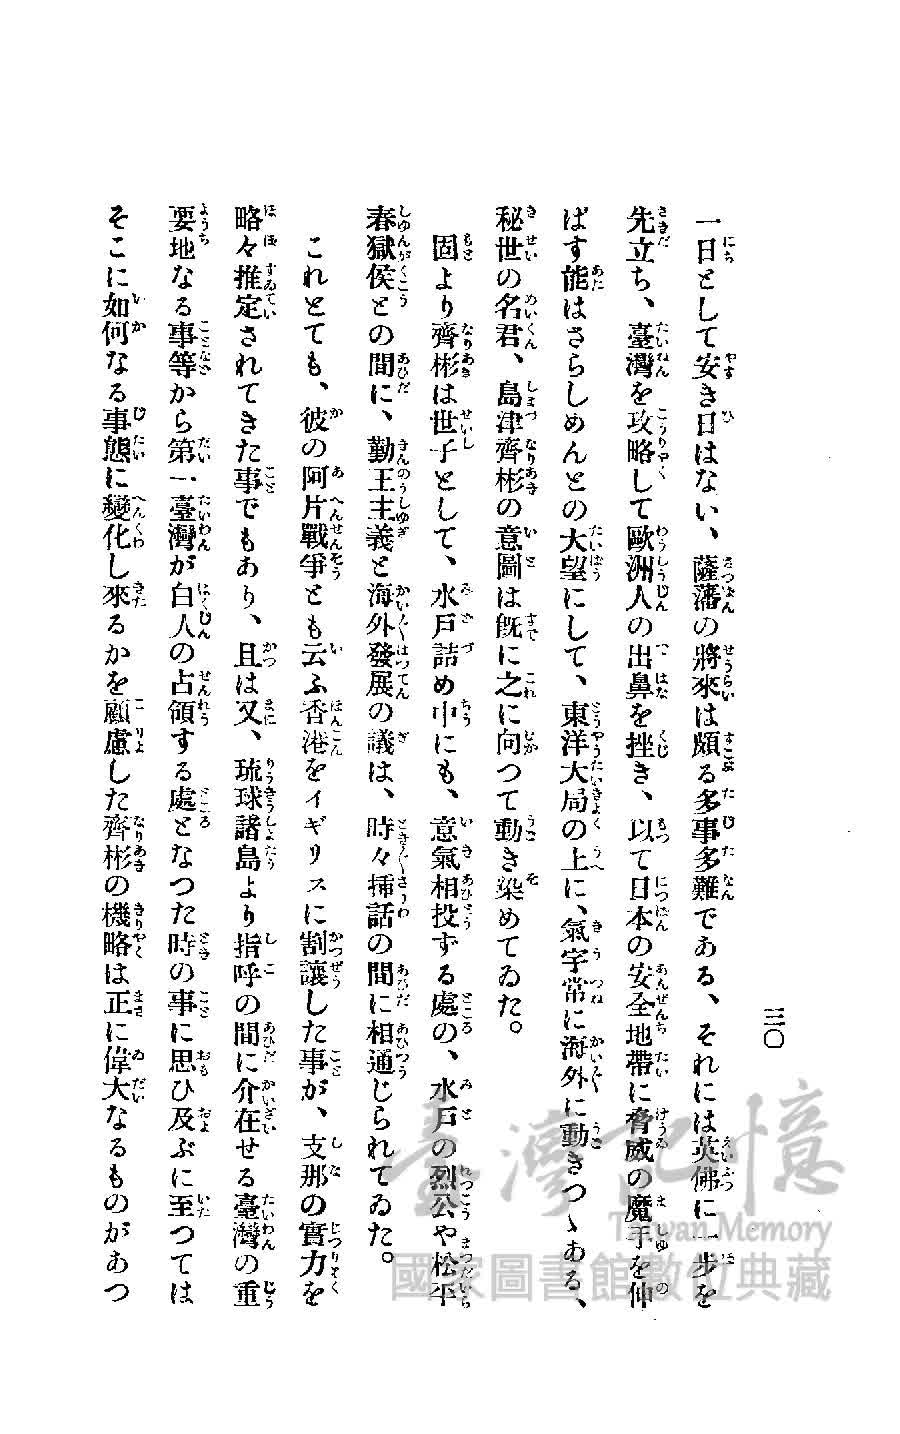 三〇
一日として安き日はない、薩藩の將來は頗る多事多難である、それには英佛に一步を
先立ち、臺灣を攻略して歐洲人の出鼻を挫き、以て日本の安全地帶に脅威の魔手を伸
ばす能はさらしめんとの大望にして、東洋大局の上に、氣宇常に海外に動きつゝある、
秘世の名君、島津齊彬の意圖は旣に之に向つて動き染めてゐた。
固より齊彬は世子として、水戸詰め中にも、意氣相投ずる處の、水戸の烈公や松平
春獄侯との間に、勤王主義と海外發展の議は、時々揷話の間に相通じられてゐた。
これとても、彼の阿片戰爭とも云ふ香港をイギリスに割讓した事が、支那の實力を
略々推定されてきた事でもあり、且は又、琉球諸島より指呼の間に介在せる臺灣の重
要地なる事等から第一臺灣が白人の占領する處となつた時の事に思ひ及ぶに至つては
そこに如何なる事態に變化し來るかを顧慮した齊彬の機略は正に偉大なるものがあつ
臺灣記憶
Taiwan Memory
國家圖書館數位典藏